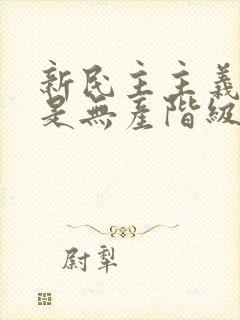 新民主主義
是無產階級
尉犁